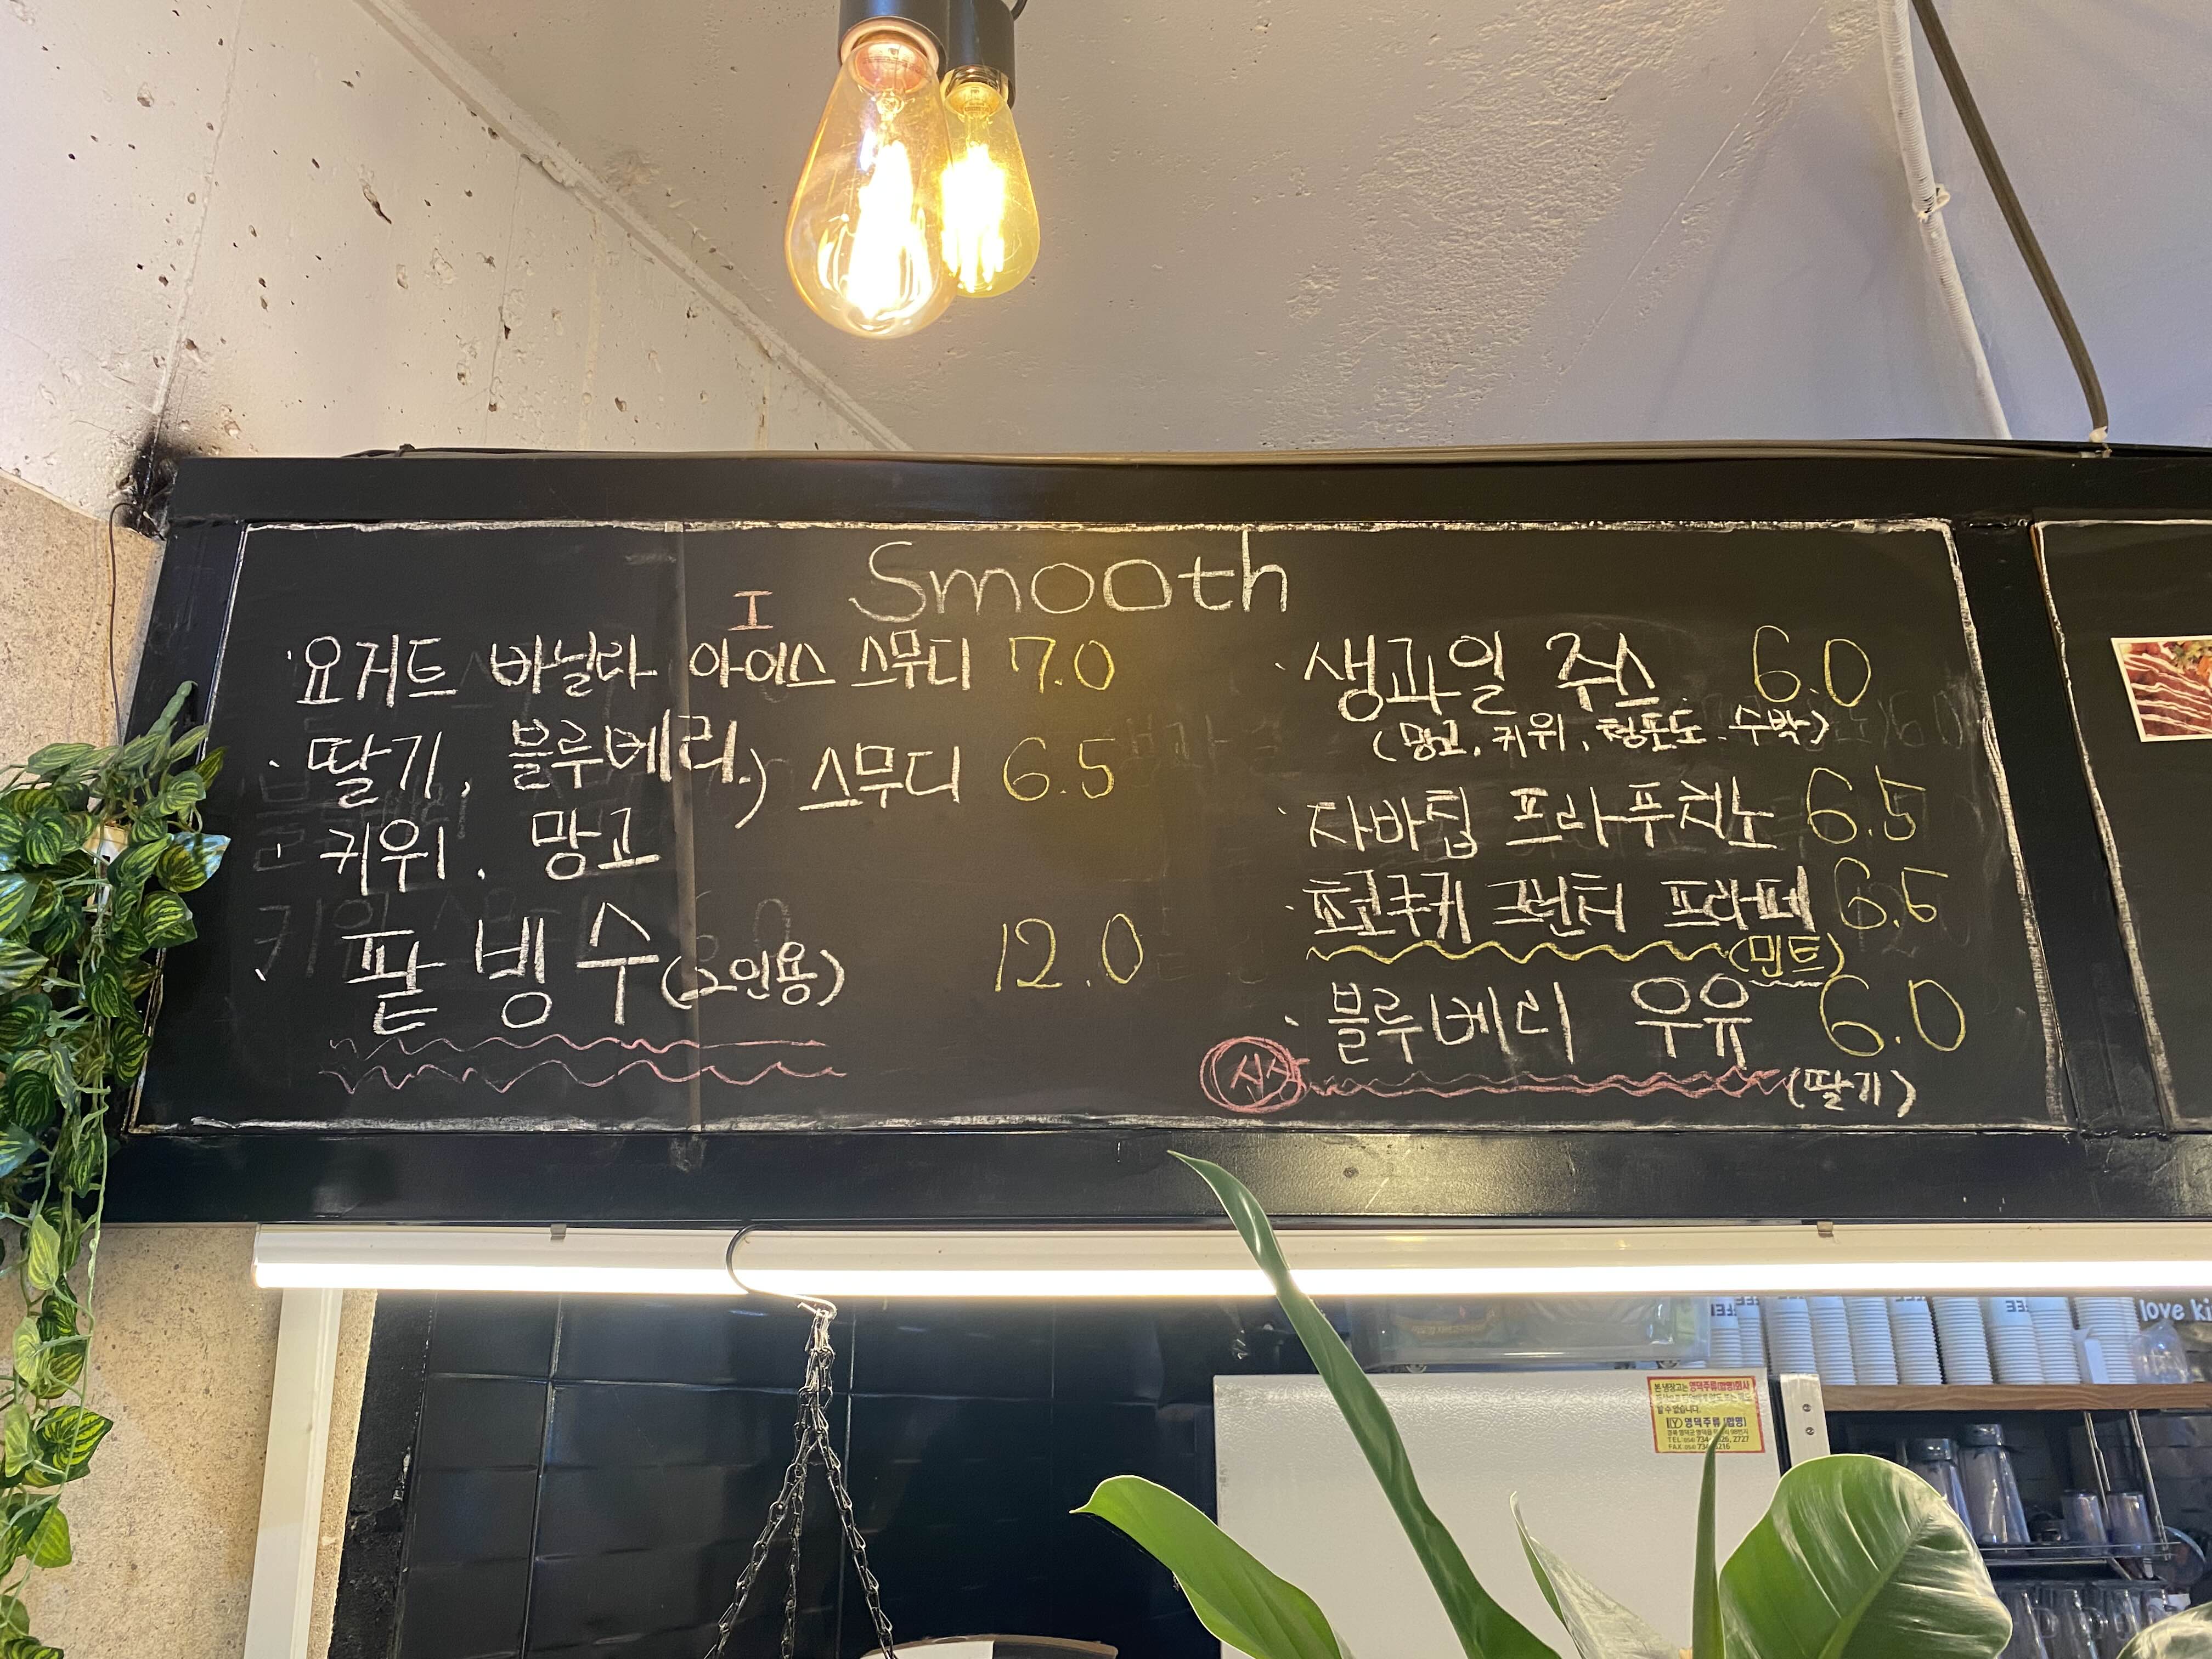 Smooth
I
· 요거트 바닐라 아이스 스무디 7.0
· 딸기, 블루베리,) 스무디 6.5
키위, 망고
팥빙수(2인용) 12.0
· 생과일 쥬스 6.0
(망고, 키위, 청포도, 수박)
· 자바칩 프라푸치노 6.5
· 초코쿠키 크런치 프라페 6.5
(민트)
· 블루베리 우유 6.0
(딸기)
love ki
본 냉장고는 영덕주류(합명)회사
할 수 없습니다.
영덕주류 (합명)
FAX